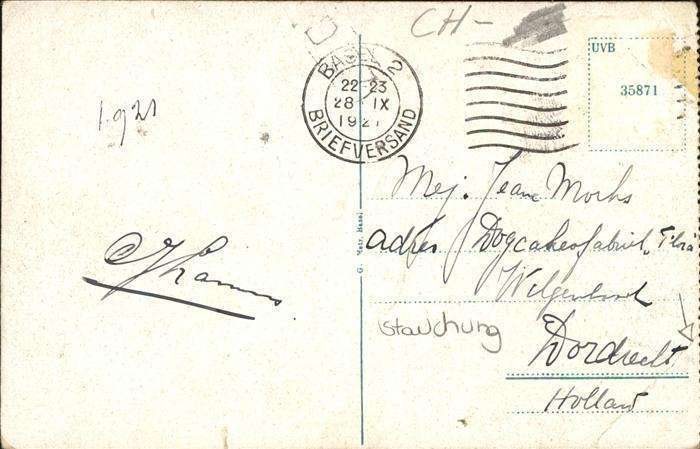 CH-
UVB
35871
BASEL 2
22-23
28 IX
1921
BRIEFVERSAND
1921
Mej. Jeanne
adres Dogcakesfabriek
Dordrecht
Holland
Stauchung
G. Metz, Basel